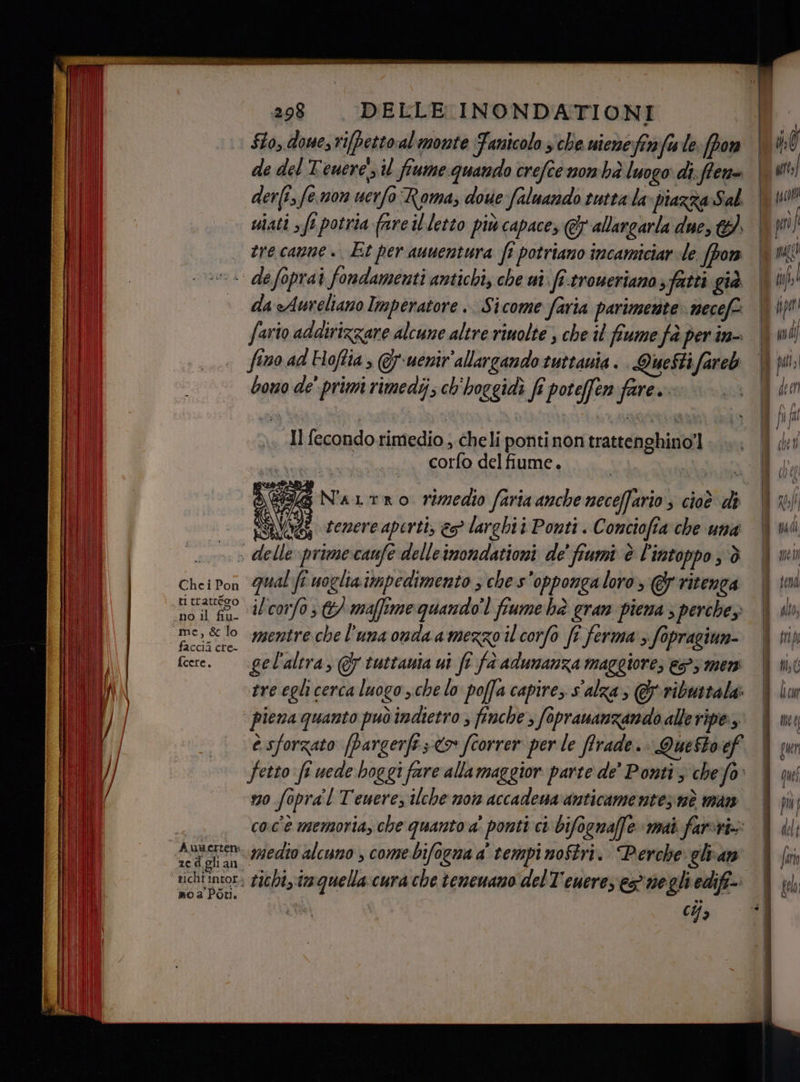 298 DELLE INONDATIONI
sto, doue, rispetto al monte Janicolo, che uiene fin sù le spon
de del Teuere, il fiume quando cresce non hà luogo di sten-
dersi, se non uerso Roma, doue saluando tutta la piazza Sal
uiati, si potria fare il letto più capace, & allargarla due, &
tre canne. Et per auuentura si potriano incamiciar le spon
de sopra i fondamenti antichi, che ui si troueriano, fatti già
da Aureliano Imperatore. Sicome saria parimente neces-
sario addirizzare alcune altre riuolte, che il fiume fà per in-
fino ad Hostia, & uenir' allargando tuttauia. Questi sareb
bono de' primi rimedij, ch'hoggidì si potessen fare.
Il secondo rimedio, che li ponti non trattenghino'l
corso del fiume.
N'ALTRO rimedio saria anche necessario, cioè di
tenere aperti, & larghi i Ponti. Conciosia che una
delle prime cause delle inondationi de' fiumi è l'intoppo, ò
qual si uoglia impedimento, che s'opponga loro, & ritenga
il corso, & massime quando'l fiume hà gran piena, perche,
mentre che l'una onda a mezzo il corso si ferma, sopragiun-
ge l'altra, & tuttauia ui si fà adunanza maggiore, &, men
tre egli cerca luogo, che lo possa capire, s'alza, & ributtala
piena quanto può indietro, finche, soprauanzando alle ripe,
è sforzato spargersi, & scorrer per le strade. Questo ef
fetto si uede hoggi fare alla maggior parte de' Ponti, che so
no sopra'l Teuere, ilche non accadeua anticamente, nè man
co c'è memoria, che quanto a' ponti ci bisognasse mai far ri-
medio alcuno, come bisogna a' tempi nostri. Perche gli an
tichi, in quella cura che teneuano del Teuere, & ne gli edifi-
cij,
Che i Pon
ti trattégo
no il fiu-
me, & lo
faccia cre-
scere.
Auuerten
ze d gli an
tichi intor
no a' Pōti.